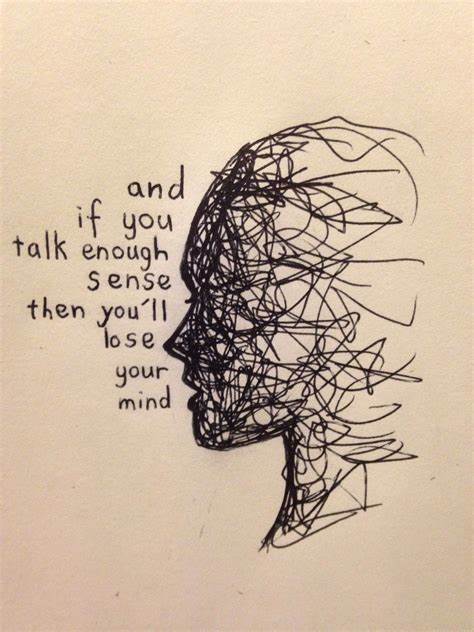 and
if you
talk enough
sense
then you'll
lose
your
mind